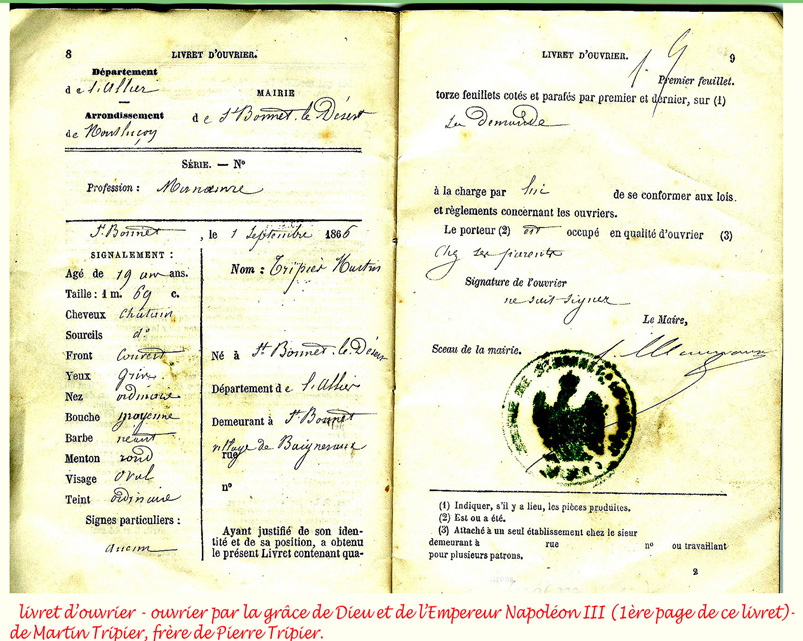 8
LIVRET D'OUVRIER.
Département
de l'Allier
Arrondissement
de Montluçon
MAIRIE
de St Bonnet-le-Désert
SÉRIE. — N°
Profession : Manœuvre
St Bonnet, le 1 septembre 1866
SIGNALEMENT :
Agé de 19 ans ans.
Taille : 1 m. 69 c.
Cheveux chatain
Sourcils do
Front Couvert
Yeux gris
Nez ordinaire
Bouche moyenne
Barbe néant
Menton rond
Visage oval
Teint ordinaire
Signes particuliers :
aucun
Nom : Tripier Martin
Né à St Bonnet-le-Désert
Département de l'Allier
Demeurant à St Bonnet
village de
rue
n°
Ayant justifié de son iden-
tité et de sa position, a obtenu
le présent Livret contenant qua-
LIVRET D'OUVRIER.
9
Premier feuillet.
torze feuillets cotés et parafés par premier et dernier, sur (1)
sa Demande
à la charge par lui de se conformer aux lois
et règlements concernant les ouvriers.
Le porteur (2) est occupé en qualité d'ouvrier (3)
chez ses parents
Signature de l'ouvrier
ne sait signer
Le Maire,
Sceau de la mairie.
(1) Indiquer, s'il y a lieu, les pièces produites.
(2) Est ou a été.
(3) Attaché à un seul établissement chez le sieur
demeurant à rue n° ou travaillant
pour plusieurs patrons.
2
livret d'ouvrier - ouvrier par la grâce de Dieu et de l'Empereur Napoléon III (1ère page de ce livret)-
de Martin Tripier, frère de Pierre Tripier.